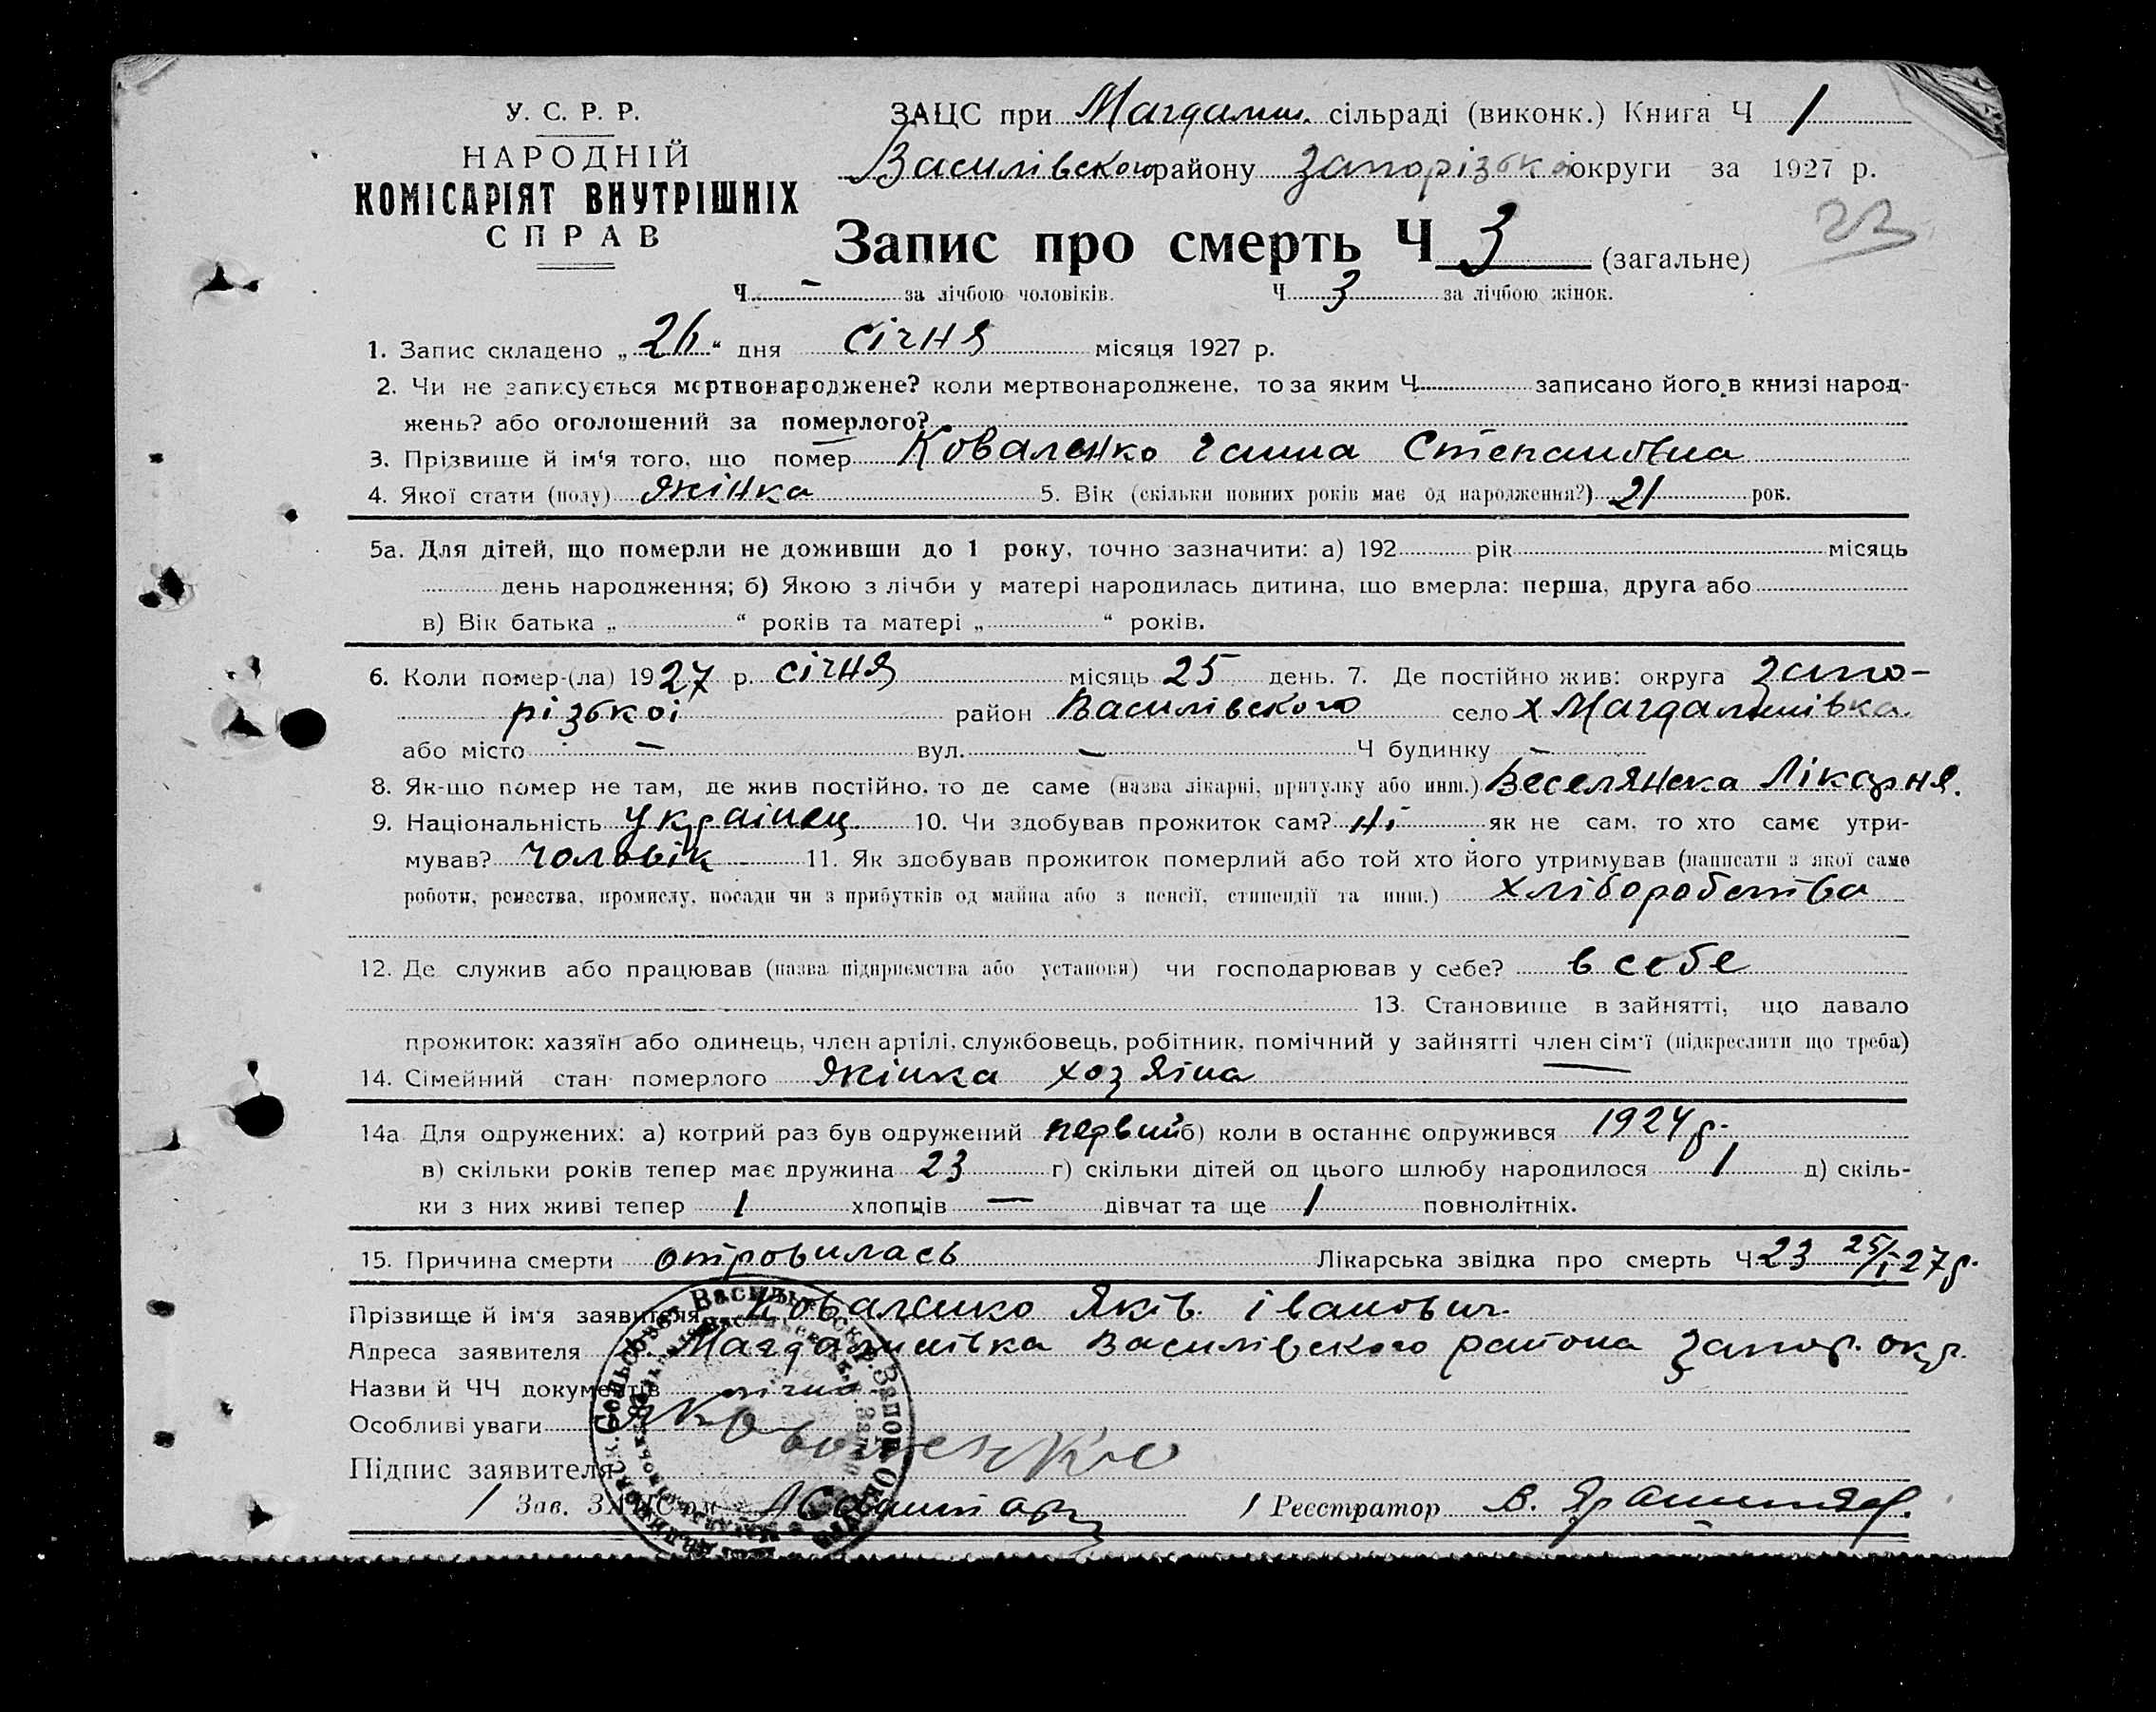 У. С. Р. Р.
НАРОДНІЙ
КОМІСАРІЯТ ВНУТРІШНІХ
СПРАВ
ЗАЦС при Магдалин. сільраді (виконк.) Книга Ч 1
Василівского району Запорізької округи за 1927 р.
Запис про смерть Ч 3 (загальне)
Ч. – за лічбою чоловіків. Ч. 3 за лічбою жінок.
1. Запис складено „26“ дня січня місяця 1927 р.
2. Чи не записується мертвонароджене? коли мертвонароджене, то за яким Ч. записано його в книзі народ-
жень? або оголошений за померлого?
3. Прізвище й ім'я того, що помер Коваленко Ганна Степановна
4. Якої стати (полу) жінка 5. Вік (скільки повних років має од народження?) 21 рок.
5а. Для дітей, що померли не доживши до 1 року, точно зазначити: а) 192 рік місяць
день народження; б) Якою з лічби у матері народилась дитина, що вмерла: перша, друга або
в) Вік батька „ “ років та матері „ “ років.
6. Коли помер-(ла) 1927 р. січня місяць 25 день. 7. Де постійно жив: округа Запо-
різької район Василівского село х Магдалинівка
або місто – вул. – Ч будинку –
8. Як-що помер не там, де жив постійно, то де саме (назва лікарні, притулку або инш.) Веселянска Лікарня.
9. Національність Українец 10. Чи здобував прожиток сам? ні як не сам, то хто самє утри-
мував? чоловік 11. Як здобував прожиток померлий або той хто його утримував (написати з якої саме
роботи, ремества, промислу, посади чи з прибутків од майна або з пенсії, стипендії та инш.) хліборобства
12. Де служив або працював (назва підприємства або установи) чи господарював у себе? в себе
13. Становище в зайнятті, що давало
прожиток: хазяїн або одинець, член артілі, службовець, робітник, помічний у зайнятті член сім'ї (підкреслити що треба)
14. Сімейний стан померлого жінка хозяїна
14а Для одружених: а) котрий раз був одружений первий б) коли в останнє одружився 1924 р.
в) скільки років тепер має дружина 23 г) скільки дітей од цього шлюбу народилося 1 д) скіль-
ки з них живі тепер 1 хлопців – дівчат та ще 1 повнолітніх.
15. Причина смерти отровилась Лікарська звідка про смерть Ч 23 25/I 27 р.
Прізвище й ім'я заявителя Коваленко Яків Іванович
Адреса заявителя х. Магдалинівка Василівского района Запор. окр.
Назви й ЧЧ документів
Особливі уваги
Підпис заявителя Я Коваленко
Зав. ЗАЦС'ом Реєстратор В.